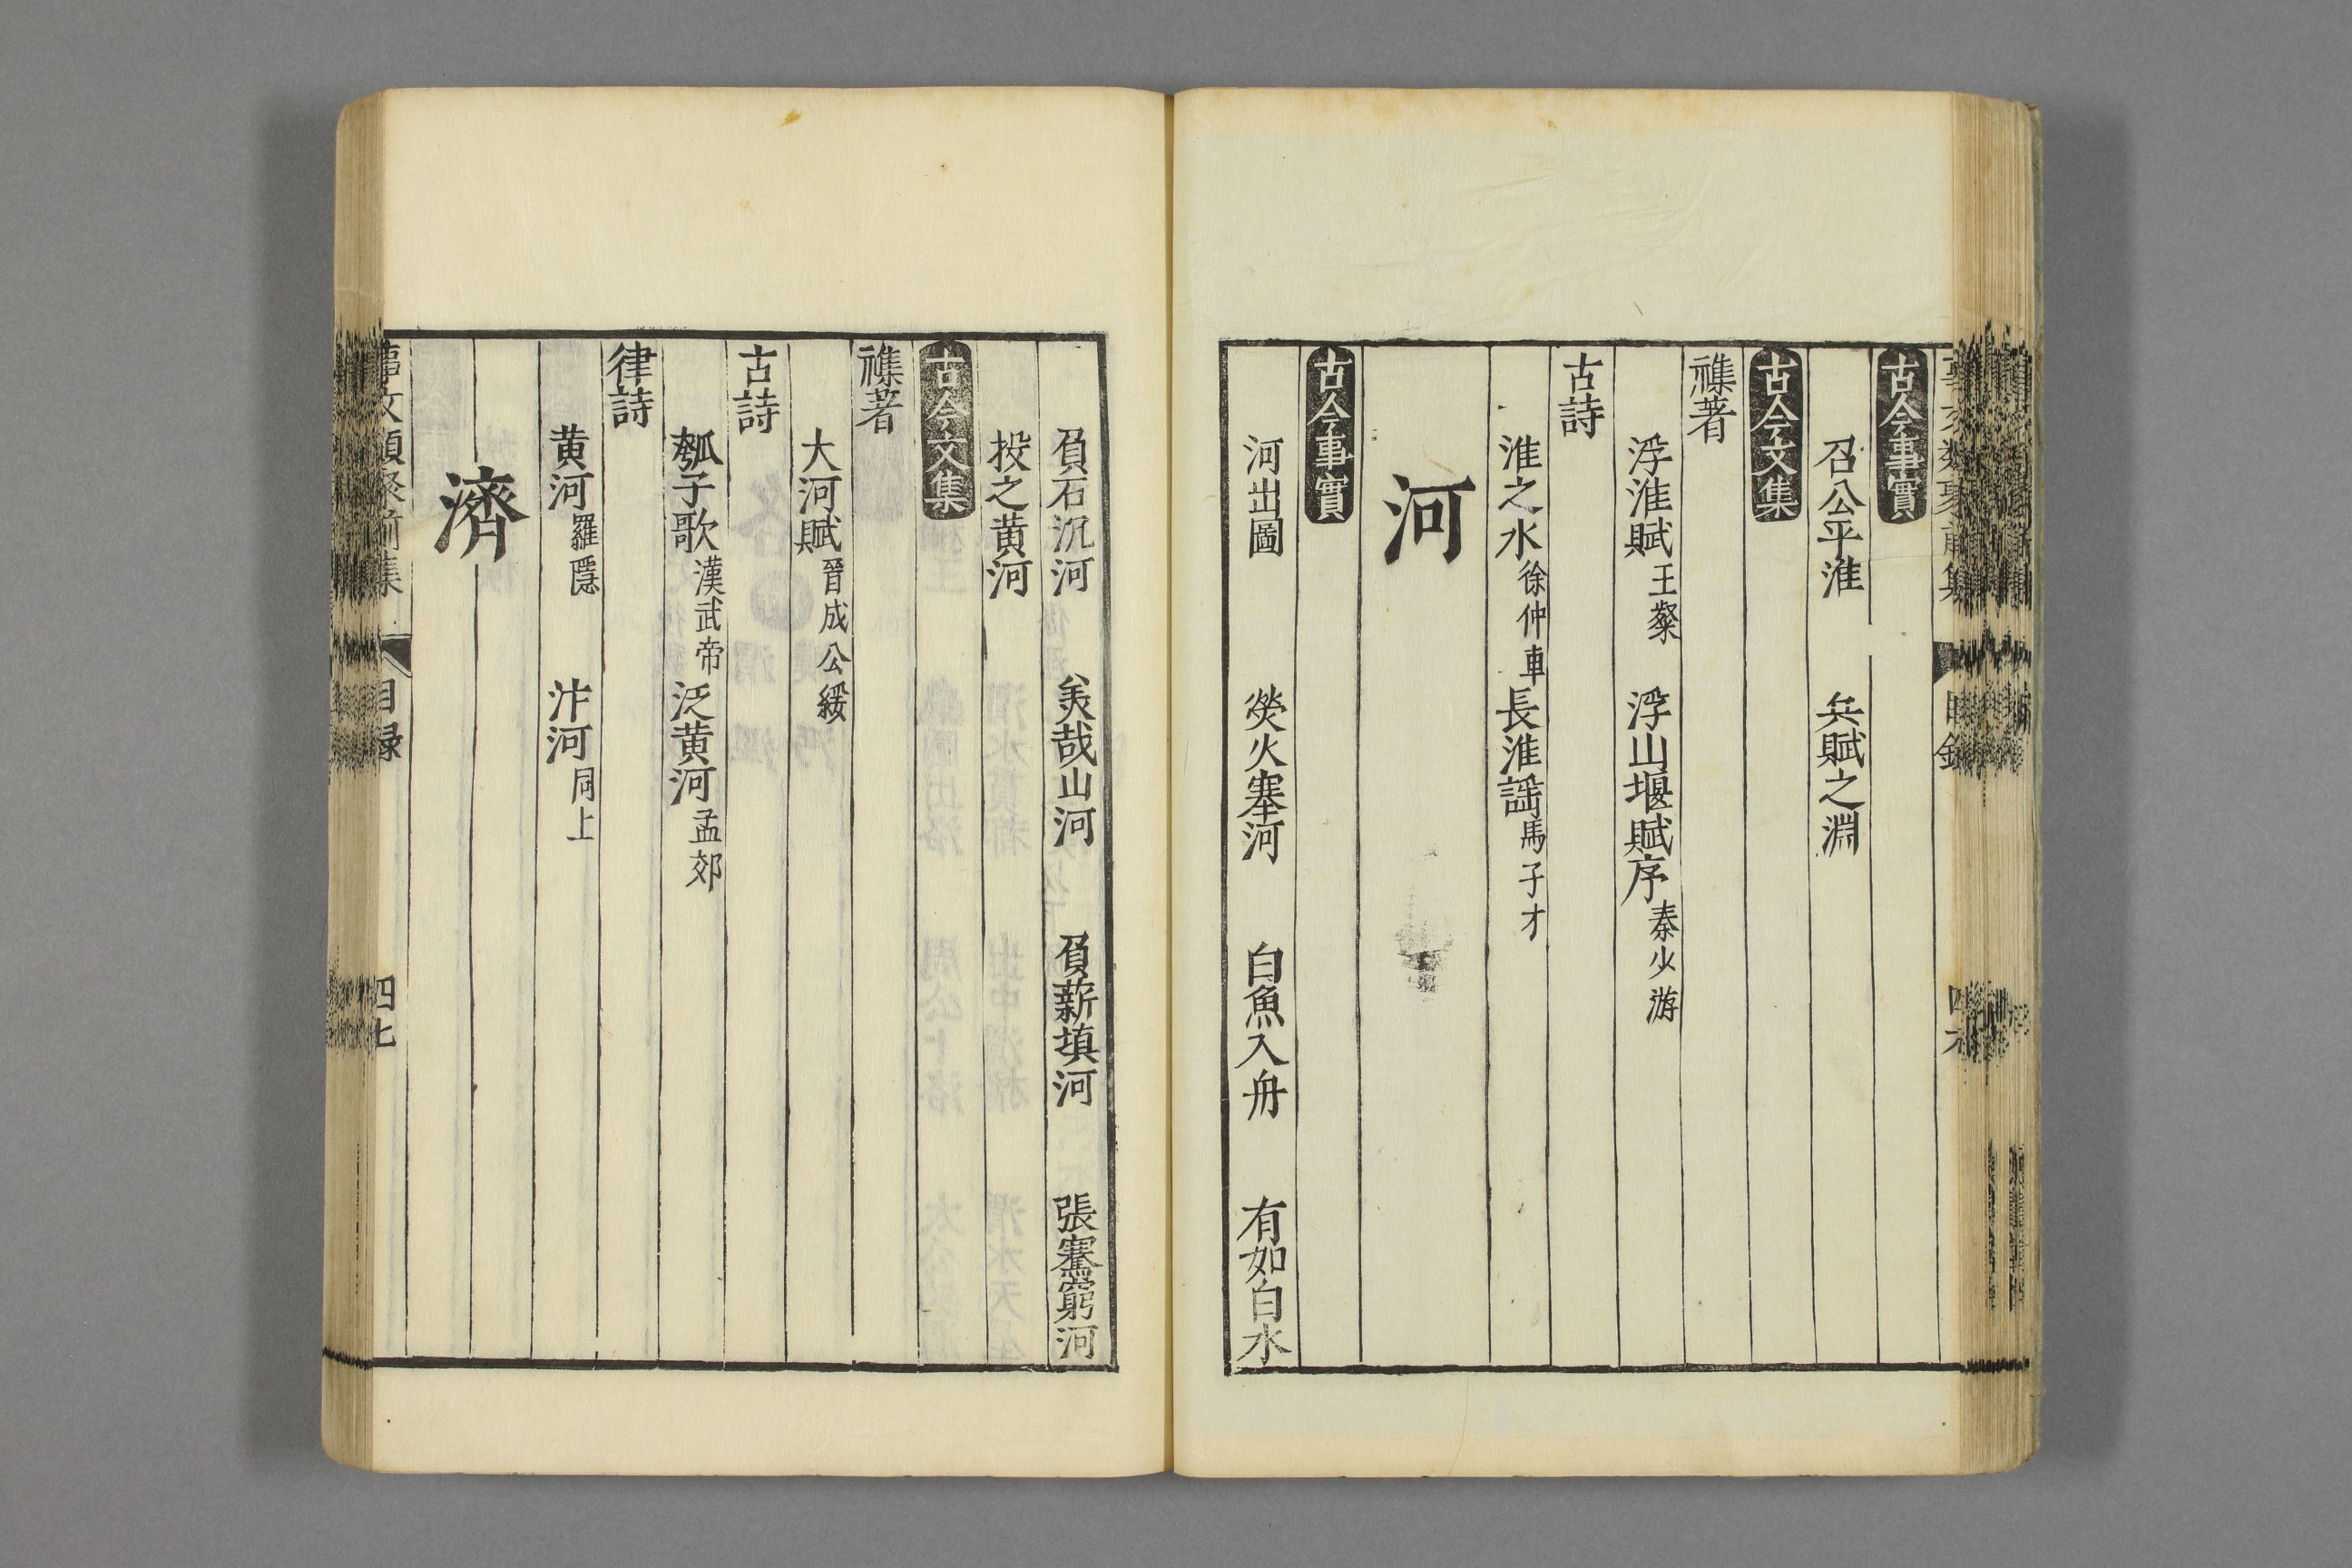 古今事實
召公平淮　兵賦之淵
古今文集
襍著
浮淮賦王粲　浮山堰賦序秦少游
古詩
淮之水徐仲車　長淮謡馬子才
河
古今事實
河出圖　熒火塞河　白魚入舟　有如白水
負石沉河　羙哉山河　負薪填河　張騫窮河
投之黄河
古今文集
襍著
大河賦晉成公綏
古詩
瓠子歌漢武帝　泛黄河孟郊
律詩
黄河羅隱　汴河同上
濟
事文類聚前集　目録　四七